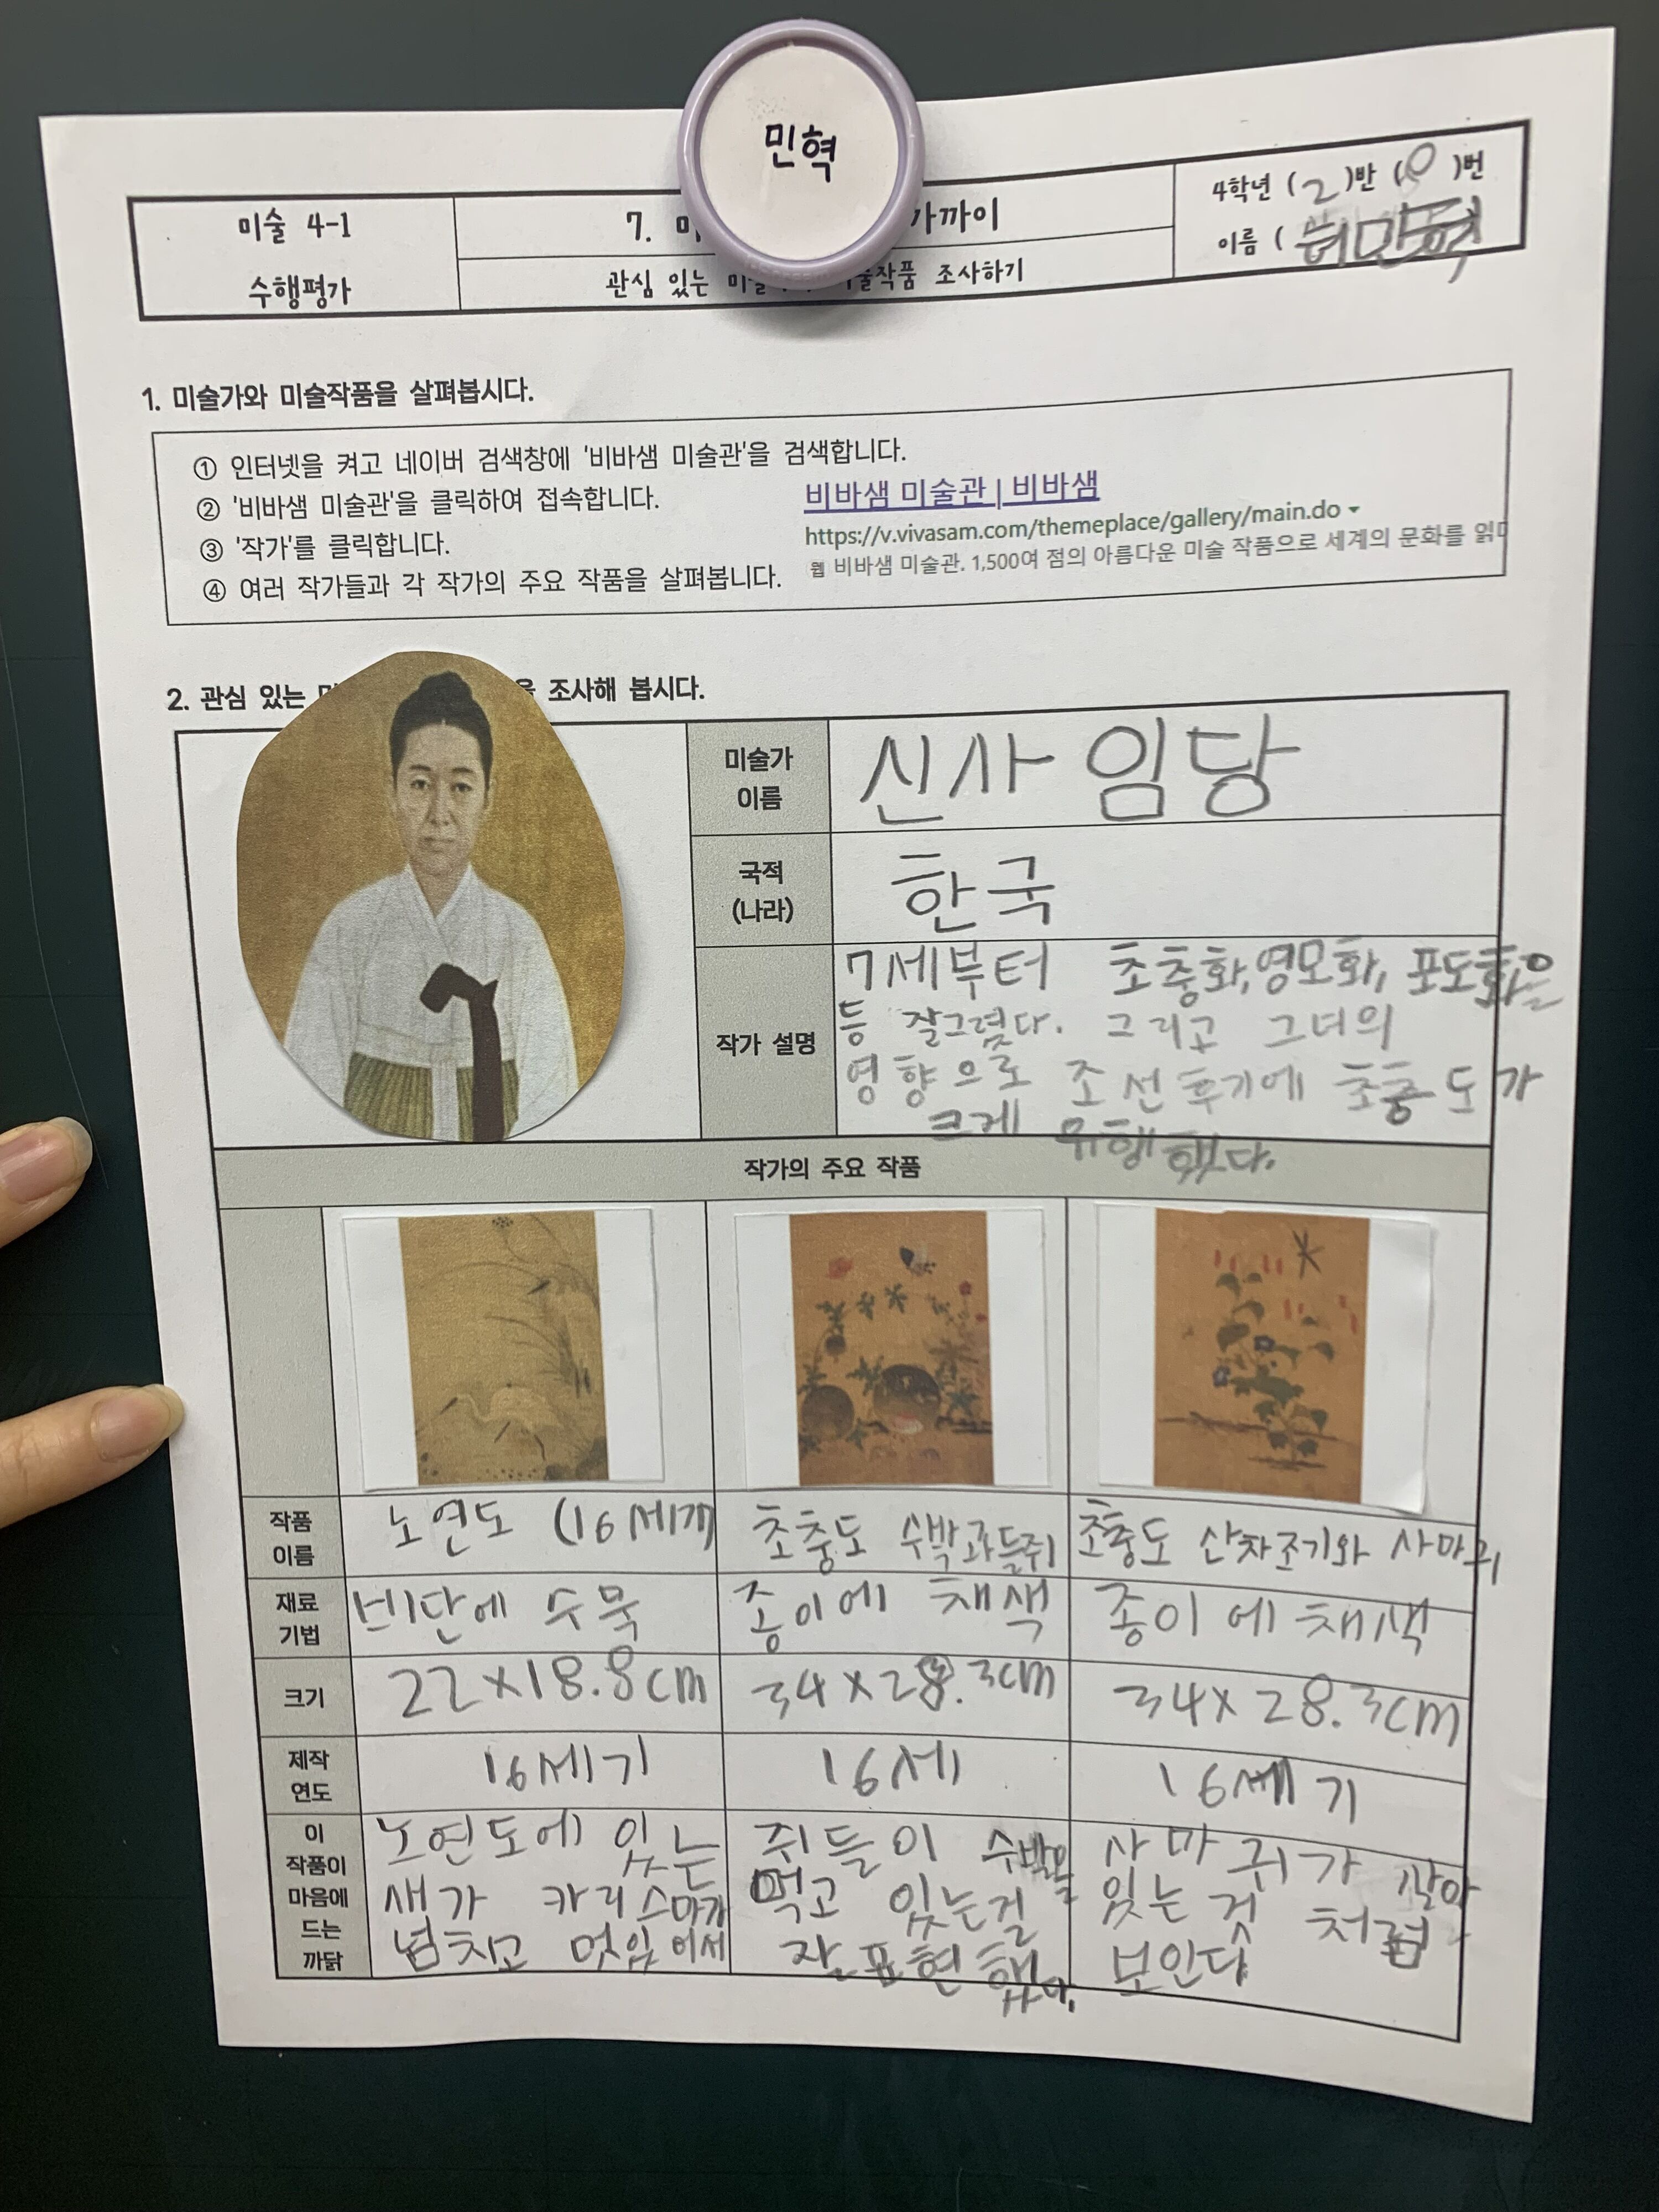 민혁
미술 4-1
수행평가
7. 미 가까이
관심 있는 미술 술작품 조사하기
4학년 (2)반 ( )번
이름 (허민혁
1. 미술가와 미술작품을 살펴봅시다.
① 인터넷을 켜고 네이버 검색창에 '비바샘 미술관'을 검색합니다.
② '비바샘 미술관'을 클릭하여 접속합니다.
③ '작가'를 클릭합니다.
④ 여러 작가들과 각 작가의 주요 작품을 살펴봅니다.
비바샘 미술관 | 비바샘
https://v.vivasam.com/themeplace/gallery/main.do
웹 비바샘 미술관. 1,500여 점의 아름다운 미술 작품으로 세계의 문화를 읽
2. 관심 있는 을 조사해 봅시다.
미술가
이름
신사임당
국적
(나라)
한국
작가 설명
7세부터 초충화, 영모화, 포도화을
등 잘그렸다. 그리고 그녀의
영향으로 조선후기에 초충도가
크게 유행했다.
작가의 주요 작품
작품
이름
노연도 (16세기)
초충도 수박과들쥐
초충도 산차조기와 사마귀
재료
기법
비단에 수묵
종이에 채색
종이에 채색
크기
22x18.8cm
34x28.3cm
34x28.3cm
제작
연도
16세기
16세
16세기
이
작품이
마음에
드는
까닭
노연도에 있는
새가 카리스마가
넘치고 멋있어서
쥐들이 수박을
먹고 있는걸
잘 표현했다.
사마귀가 살아
있는 것 처럼
보인다